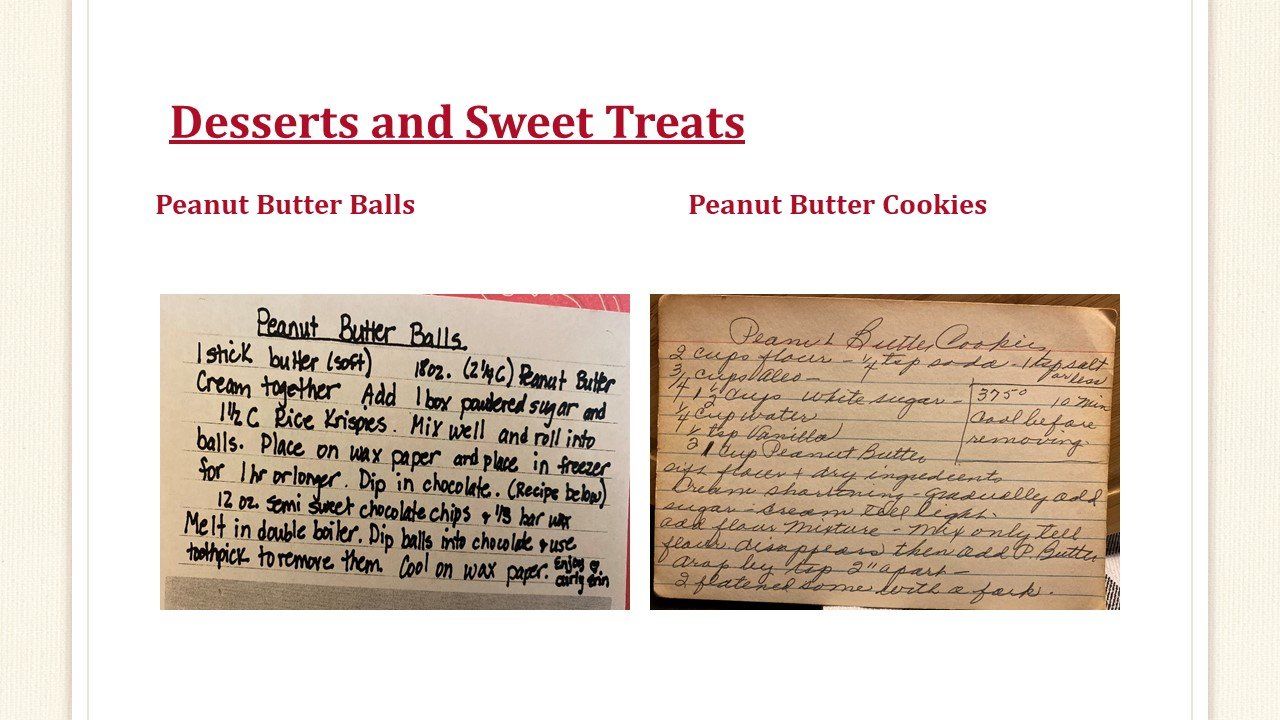 Desserts and Sweet Treats
Peanut Butter Balls
Peanut Butter Cookies
Peanut Butter Balls
1 stick butter (soft) 18oz. (2 1/4 C) Peanut Butter
Cream together Add 1 box powdered sugar and
1 1/2 C Rice Krispies. Mix well and roll into
balls. Place on wax paper and place in freezer
for 1 hr or longer. Dip in chocolate. (Recipe below)
12 oz. semi sweet chocolate chips + 1/3 bar wax
Melt in double boiler. Dip balls into chocolate + use
toothpick to remove them Cool on wax paper. Enjoy
Peanut Butter Cookies
2 cups flour - 1/4 tsp soda - 1 tsp salt
or less
3/4 cups oleo -
1 1/2 cups white sugar -
375° 10 min
1/4 cup water
Cool before
1/2 tsp Vanilla
removing
1 cup Peanut Butter
sift flour + dry ingredients
Cream shortning - gradually add
sugar - cream tell light.
add flour mixture - mix only tell
flour disappears then add P. Butter
drop by tsp 2" apart -
flatened some with a fork.